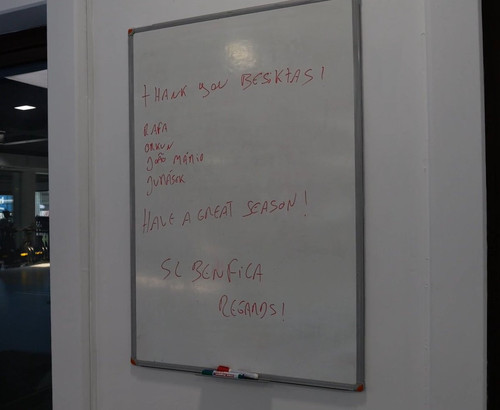 THANK you BESIKTAS!
RAFA
ORKUN
JOÃO MÁRIO
JURÁSEK
HAVE A GREAT SEASON!
SL BENFICA
REGARDS!